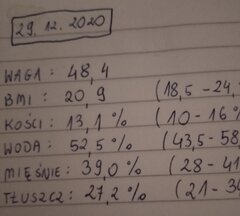 29.12.2020
WAGA: 48,4
BMI: 20,9 (18,5-24,
KOŚCI: 13,1% (10-16%
WODA: 52,5% (43,5-58,
MIĘŚNIE: 39,0% (28-41
TŁUSZCZ: 27,2% (21-3